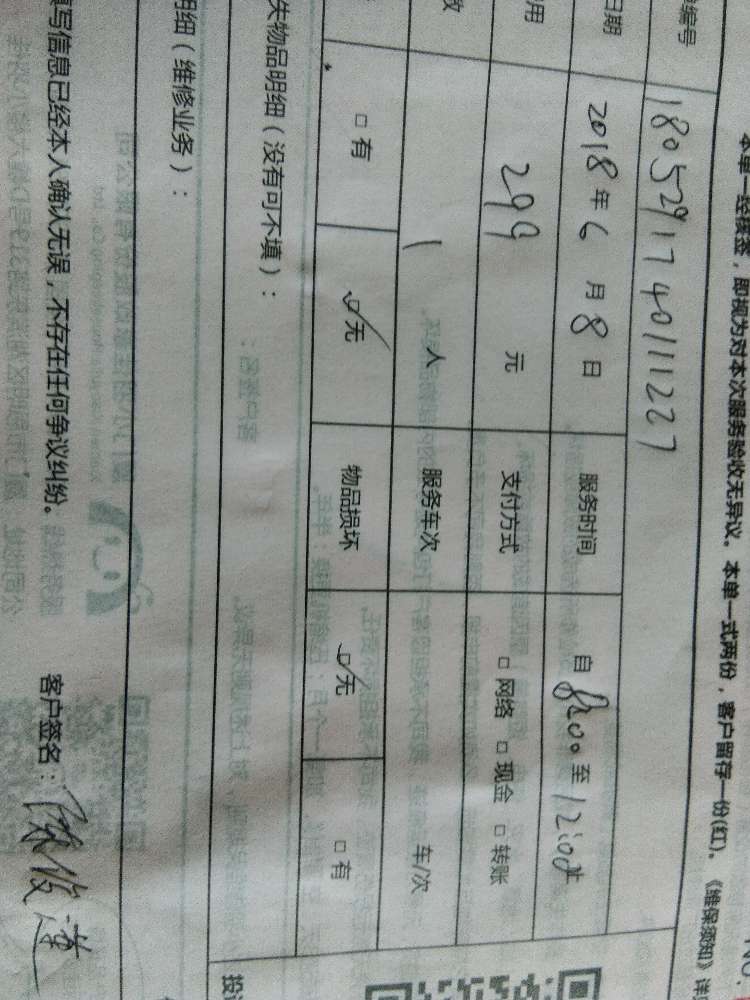 本单一经接签，即视为对本次服务验收无异议。本单一式两份，客户留存一份(红)。《维保须知》详
NO.
编号 1805291740111227
日期 2018年6月8日 服务时间 自8:00至12:00
用 299 元 支付方式 □网络 □现金 □转账
数 1 人 服务车次 车/次
□有 ☑无 物品损坏 ☑无 □有
失物品明细（没有可不填）：
明细（维修业务）：
填写信息已经本人确认无误，不存在任何争议纠纷。 客户签名：